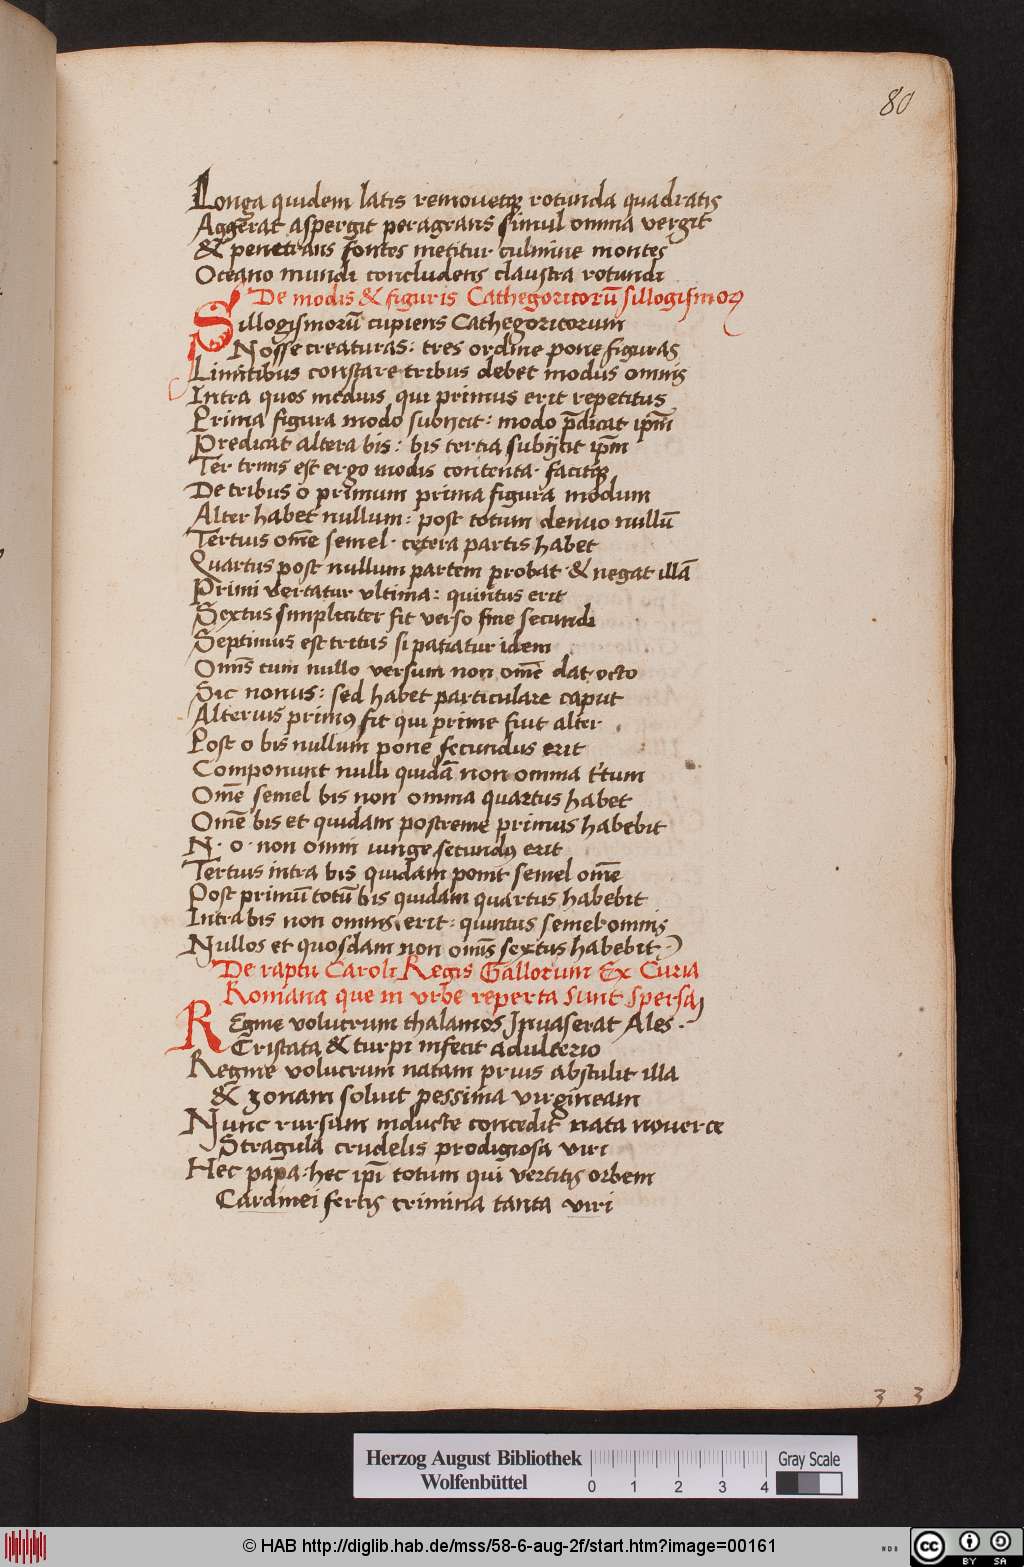 80
Longa quidem latis remouetqꝫ rotunda quadratis
Aggerat aspergit peragrans simul omnia vergit
& penetrans fontes metitur culmine montes
Oceano mundi concludens claustra rotundi
De modis & figuris Cathegoricorū sillogismorꝝ
Sillogismorū cupiens Cathegoricorum
Nosse creaturas: tres ordine pone figuras
Limitibus constare tribus debet modus omnis
Intra quos medius, qui primus erit repetitus
Prima figura modo subijcit: modo p̄dicat ip̄m
Predicat altera bis: bis tertia subijcit ip̄m
Ter trinis est ergo modis contenta· facitqꝫ
De tribus o primum prima figura modum
Alter habet nullum: post totum denuo nullū
Tertius om̄e semel· cetera partis habet
Quartus post nullum partem probat· & negat illā
Primi vertatur vltima: quintus erit
Sextus simpliciter fit verso fine secundi
Septimus est tritus si patiatur idem
Omīs cum nullo versum non om̄e dat octo
Sic nonus: sed habet particulare caput
Alterius primꝰ fit qui prime fiut alter
Post o bis nullum pone secundus erit
Componunt nulli quidā non omnia t'tum
Om̄e semel bis non omnia quartus habet
Om̄e bis et quidam postreme primus habebit
N· o· non omni iunge secundꝰ erit
Tertius intra bis quidam ponit semel om̄e
Post primū totū bis quidam quartus habebit
Intra bis non omnis erit: quintus semel·omnis
Nullos et quosdam non omīs sextus habebit·
De raptu Caroli Regis Gallorum Ex Curia
Romana que in vrbe reperta sunt spersa
Regine volucrum thalamos Inuaserat Ales·
Cristata & turpi infecit adulterio
Regine volucrum natam prius abstulit illa
& zonam soluit pessima virgineam
Nunc rursum inducte concedit nata nouerce
Stragula crudelis prodigiosa viri
Hec papa·hec ip̄i totum qui vertitis orbem
Cardinei fertis crimina tanta viri
3 3
Herzog August Bibliothek
Wolfenbüttel
0 1 2 3 4
Gray Scale
© HAB http://diglib.hab.de/mss/58-6-aug-2f/start.htm?image=00161
cc BY SA